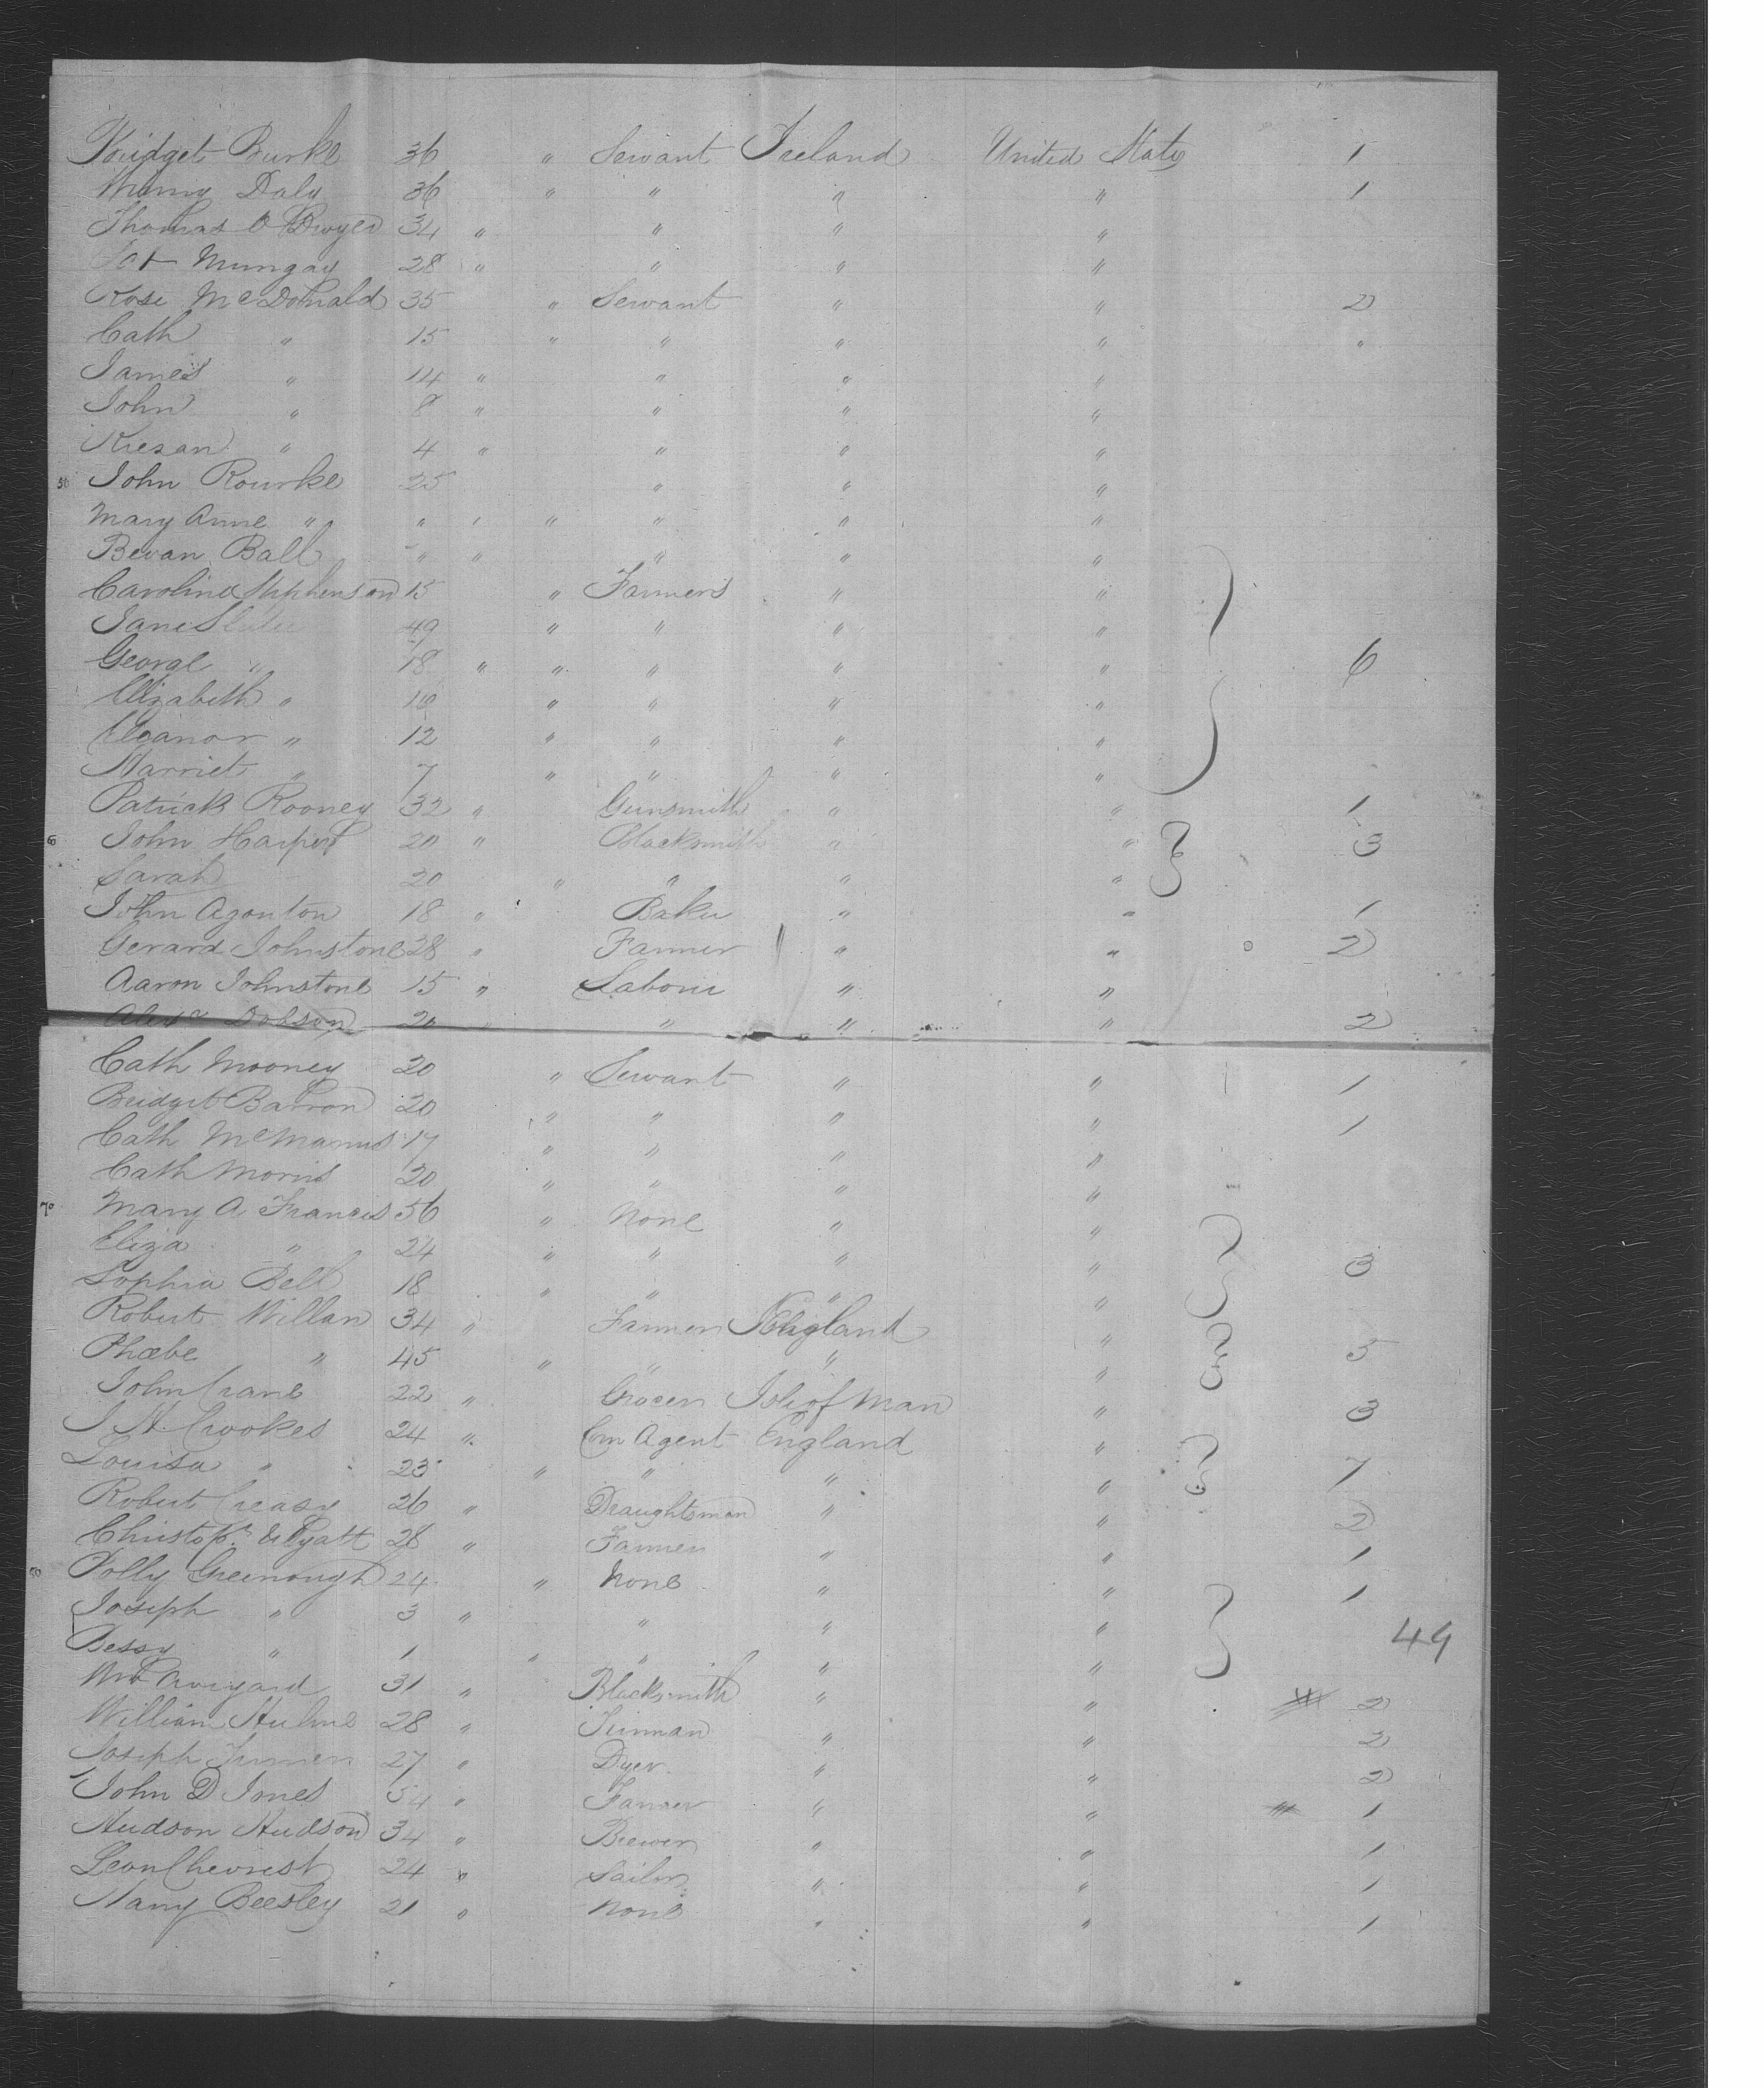 Bridget Burke 36 " Servant Ireland United States 1
Daly 36 " " " " 1
Thomas O Dwyer 34 " " " "
Pat Mungay 28 " " " "
Rose McDonald 35 " Servant " " 2
Cath " 15 " " " " "
James " 14 " " " "
John " 8 " " " "
Kiezan " 4 " " " "
50 John Rourke 25 " " "
Mary Anne " " " " " " "
Bevan Ball " " " " "
Caroline Stephenson 15 " Farmers " "
Jane 49 " " " "
George " 18 " " " " " 6
Elizabeth " 16 " " " "
Eleanor " 12 " " " "
Harriet " 7 " " " "
Patrick Rooney 32 " Gunsmith " " 1
60 John Harper 20 " Blacksmith " " 3
Sarah 20 " " " "
John Aganton 18 " Baker " " 1
Gerard Johnstone 28 " Farmer " " 2
Aaron Johnstone 15 " Labour " "
Alexr Dobson 20 " " " " 2
Cath Mooney 20 " Servant " " 1
Bridget Barron 20 " " " " 1
Cath McManus 17 " " " "
Cath Morris 20 " " " "
70 Mary A Francis 56 " None " "
Eliza " 24 " " " " 3
Sophia Bell 18 " " " "
Robert Willan 34 " Farmer England "
Phœbe " 45 " " " " 5
John Crane 22 " Grocer Isle of Man " 3
J H Crookes 24 " Com Agent England "
Louisa " 23 " " " " 7
Robert Creasy 26 " Draughtsman " " 2
Christopr Wyatt 28 " Farmer " " 1
80 Polly Greenough 24 " None " " 1
Joseph " 3 " " " "
Bessy " 1 " " " " 49
Wm 31 " Blacksmith " " 2
William Hulme 28 " " " 2
Joseph 27 " Dyer " " 2
John D Jones 54 " Farmer " " 1
Hudson Hudson 34 " Brewer " " 1
Leon Chevrest 24 " Sailor " " 1
Beesley 21 " None " " 1